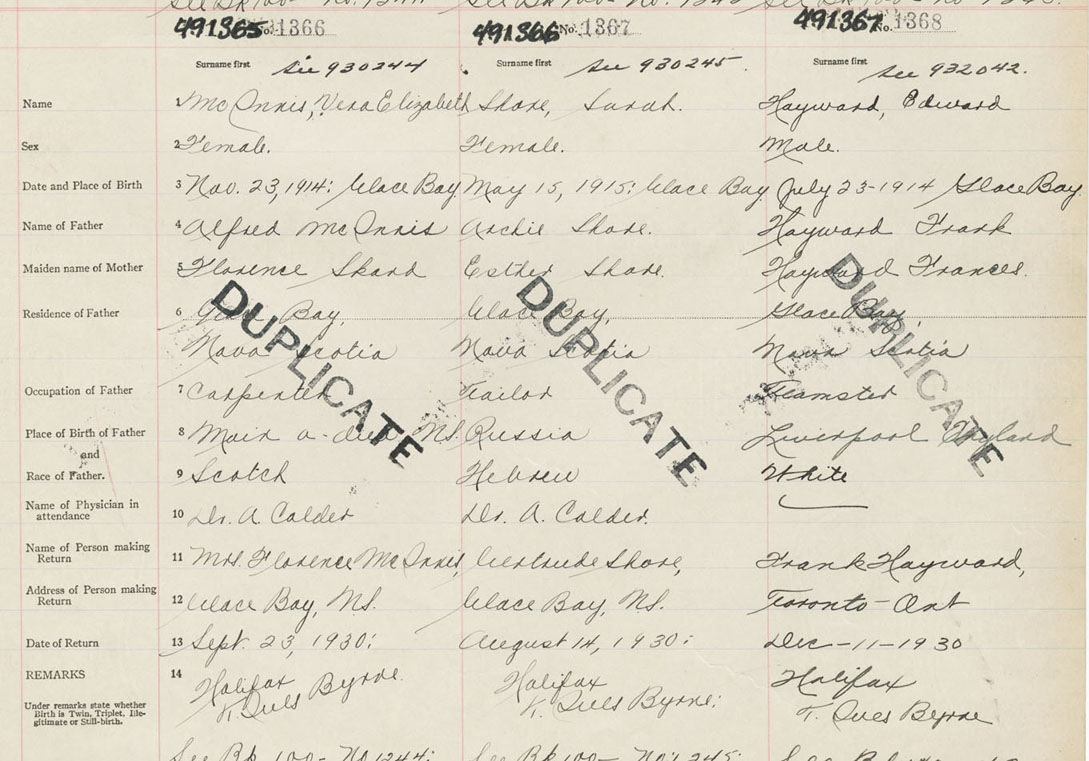 See Bk 100- No. 1244 See Bk 100- No. 1245 See Bk 100- No. 1243.
491365 No. 1366 491366 No. 1367 491367 No. 1368
Surname first see 930244 Surname first see 930245. Surname first see 932042.
Name 1 McInnis, Vera Elizabeth Shore, Sarah. Hayward, Edward
Sex 2 Female. Female. Male.
Date and Place of Birth 3 Nov. 23, 1914: Glace Bay May 15, 1915: Glace Bay July 23-1914 Glace Bay.
Name of Father 4 Alfred McInnis Archie Shore. Hayward Frank
Maiden name of Mother 5 Florence Skard Esther Shore. Hayward Frances.
Residence of Father 6 Glace Bay, Glace Bay, Glace Bay,
Nova Scotia Nova Scotia Nova Scotia
DUPLICATE DUPLICATE DUPLICATE
Occupation of Father 7 Carpenter Tailor Teamster
Place of Birth of Father 8 Main a-dieu NS. Russia Liverpool England
and
Race of Father. 9 Scotch Hebrew White
Name of Physician in
attendance 10 Dr. A. Calder Dr. A. Calder.
Name of Person making
Return 11 Mrs. Florence McInnis, Gertrude Shore, Frank Hayward,
Address of Person making
Return 12 Glace Bay, NS. Glace Bay, NS. Toronto-Ont
Date of Return 13 Sept. 23, 1930: August 14, 1930: Dec-11-1930
REMARKS 14 Halifax Halifax Halifax
Under remarks state whether
Birth is Twin, Triplet, Ille-
gitimate or Still-birth.
Byrne. Byrne: Byrne
See Bk 100- No 1244: See Bk 100- No. 1245: